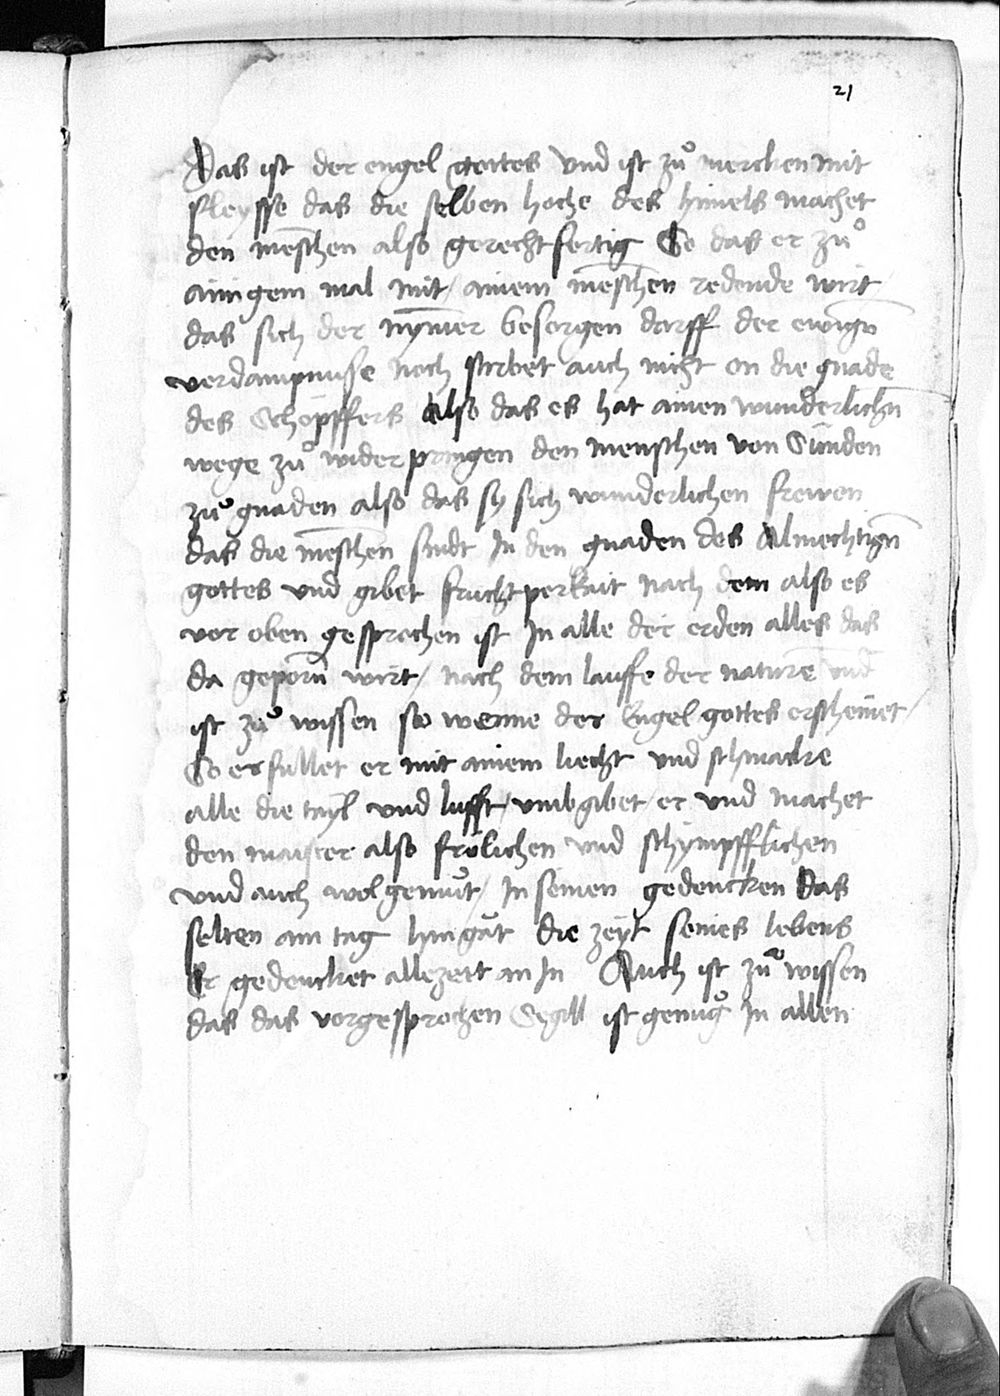 21
Das ist der engel gottes vnd ist zů mercken mit
fleysse das die selben hoche des himels machet
den mēschen also gerechtfertig So das er zů
ainigem mal mit / ainem mēschen redende wirt /
das sich der nym̄er besorgen darff der ewign̄
verdampnusse noch stirbet auch nicht on die gnade
des Schöpffers Also das es hat ainen wunderlichn̄
wege zů wider pringen den menschen von Sünden
zů gnaden also das sy sich wunderlichen frewen
das die mēschen sindt In den gnaden des Almechtign̄
gottes vnd gibet fruchtperkait nach dem also es
vor oben gesprochen ist In alle der erden alles das
da geporn̄ wirt / nach dem lauffe der nature vnd
ist zů wissen so wenne der Engel gottes erscheinet /
So erfüllet er mit ainem liecht vnd schmacke
alle die tayl vnd lufft / vmbgibet / er vnd machet
den maister also frölichen vnd schympfflichen
vnd auch wolgemůt / In seinen gedencken das
selten ain tag hin gat die zeyt seines lebens
Er gedencket allezeit an In Auch ist zů wissen
das das vorgesprochen Sigill ist genůg In allen